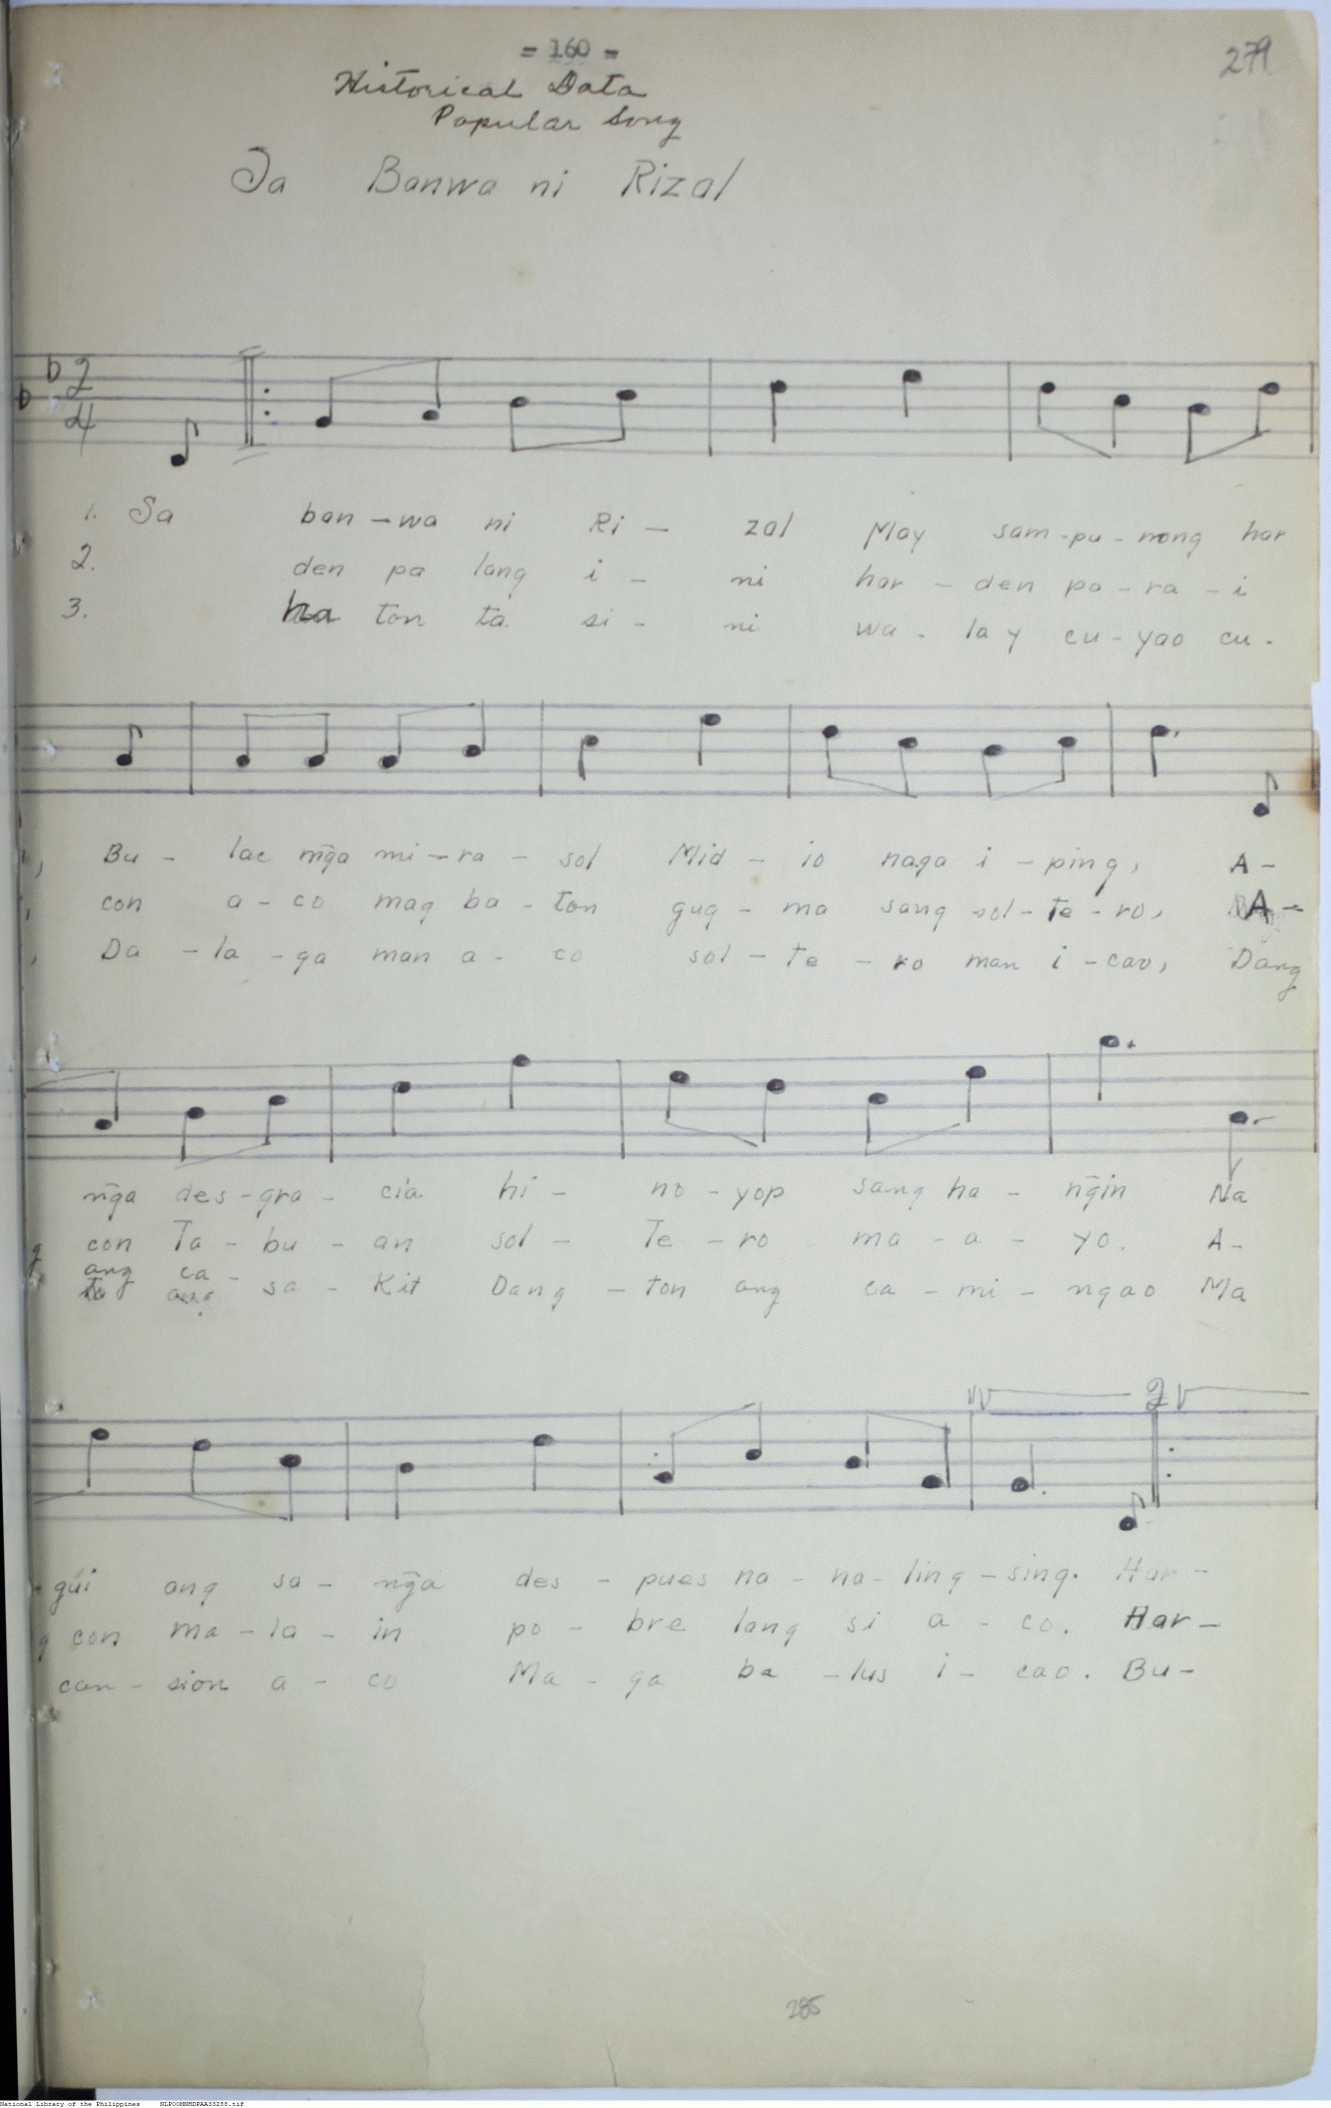 = 160 =
279
Historical Data
Popular Song
Sa Banwa ni Rizal
2
4
1. Sa ban - wa ni Ri - zal May sam - pu - nong har
2. den pa lang i - ni har - den pa - ra - i
3. ha ton ta si - ni wa - lay cu - yao cu -
, Bu - lac m̃ga mi - ra - sol Mid - io naga i - ping, A -
, con a - co mag ba - ton gug - ma sang sol - te - ro, A -
, Da - la - ga man a - co sol - te - ro man i - cao, Dang
ñga des - gra - cia hi - no - yop sang ha - ñgin Na
g con Ta - bu - an sol - Te - ro ma - a - yo. A -
ang ca - sa - Kit Dang - ton ang ca - mi - ngao Ma
2
- gúi ang sa - ñga des - pues na - na - ling - sing. Har -
g con ma - la - in po - bre lang si a - co. Har -
can - sion a - co Ma - ga ba - lus i - cao. Bu -
285
National Library of the Philippines NLPOOMNMDPAA33288.tif